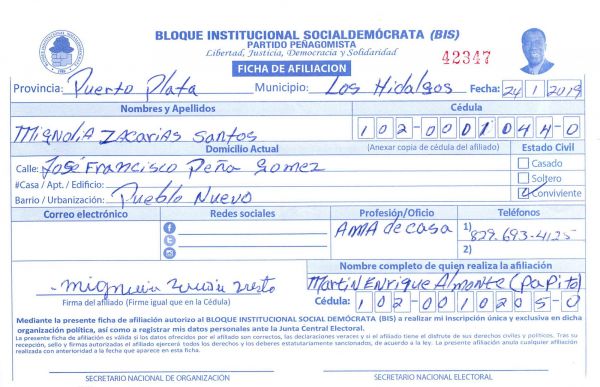 BLOQUE INSTITUCIONAL SOCIALDEMÓCRATA (BIS)
PARTIDO PEÑAGOMISTA
Libertad, Justicia, Democracia y Solidaridad
42347
FICHA DE AFILIACION
Provincia: Puerto Plata Municipio: Los Hidalgos Fecha: 24/1/2019
Nombres y Apellidos Cédula
Mignolia Zacarias Santos 102-0001044-0
Domicilio Actual (Anexar copia de cédula del afiliado) Estado Civil
Calle: José Francisco Peña Gomez Casado
#Casa / Apt. / Edificio: Soltero
Barrio / Urbanización: Pueblo Nuevo Conviviente
Correo electrónico Redes sociales Profesión/Oficio Teléfonos
AMA de casa 1) 829-693-4125
2)
Nombre completo de quien realiza la afiliación
Martin Enrique Almonte (Papito)
Firma del afiliado (Firme igual que en la Cédula) Cédula: 102-0010205-0
Mediante la presente ficha de afiliación autorizo al BLOQUE INSTITUCIONAL SOCIAL DEMÓCRATA (BIS) a realizar mi inscripción única y exclusiva en dicha
organización política, así como a registrar mis datos personales ante la Junta Central Electoral.
La presente ficha de afiliación es válida si los datos ofrecidos por el afiliado son correctos, las declaraciones veraces y si el afiliado tiene el disfrute de sus derechos civiles y políticos. Tras su
recepción, sello y firmas autorizadas el afiliado ejercerá todos los derechos y los deberes estatutariamente sancionados, de acuerdo a la ley. La presente afiliación anula cualquier afiliación
realizada con anterioridad a la fecha que aparece en esta ficha.
SECRETARIO NACIONAL DE ORGANIZACIÓN SECRETARIO NACIONAL ELECTORAL